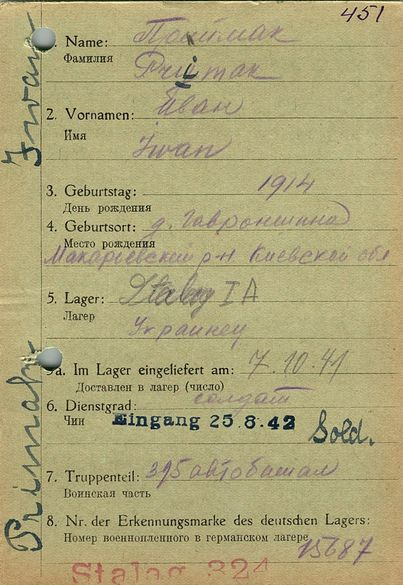 451
1. Name:
Фамилия
2. Vornamen: Иван
Имя
Iwan
3. Geburtstag: 1914
День рождения
4. Geburtsort: д. Гавронщина
Место рождения
Макарьевский р-н Киевской обл
5. Lager: Stalag I A
Лагер
Украинец
5a. Im Lager eingeliefert am: 7.10.41
Доставлен в лагер (число)
6. Dienstgrad: солдат
Чин
Eingang 25.8.42
Sold.
7. Truppenteil: 395 автобатал
Воинская часть
8. Nr. der Erkennungsmarke des deutschen Lagers:
Номер военнопленного в германском лагере
15687
Stalag 324
Iwan